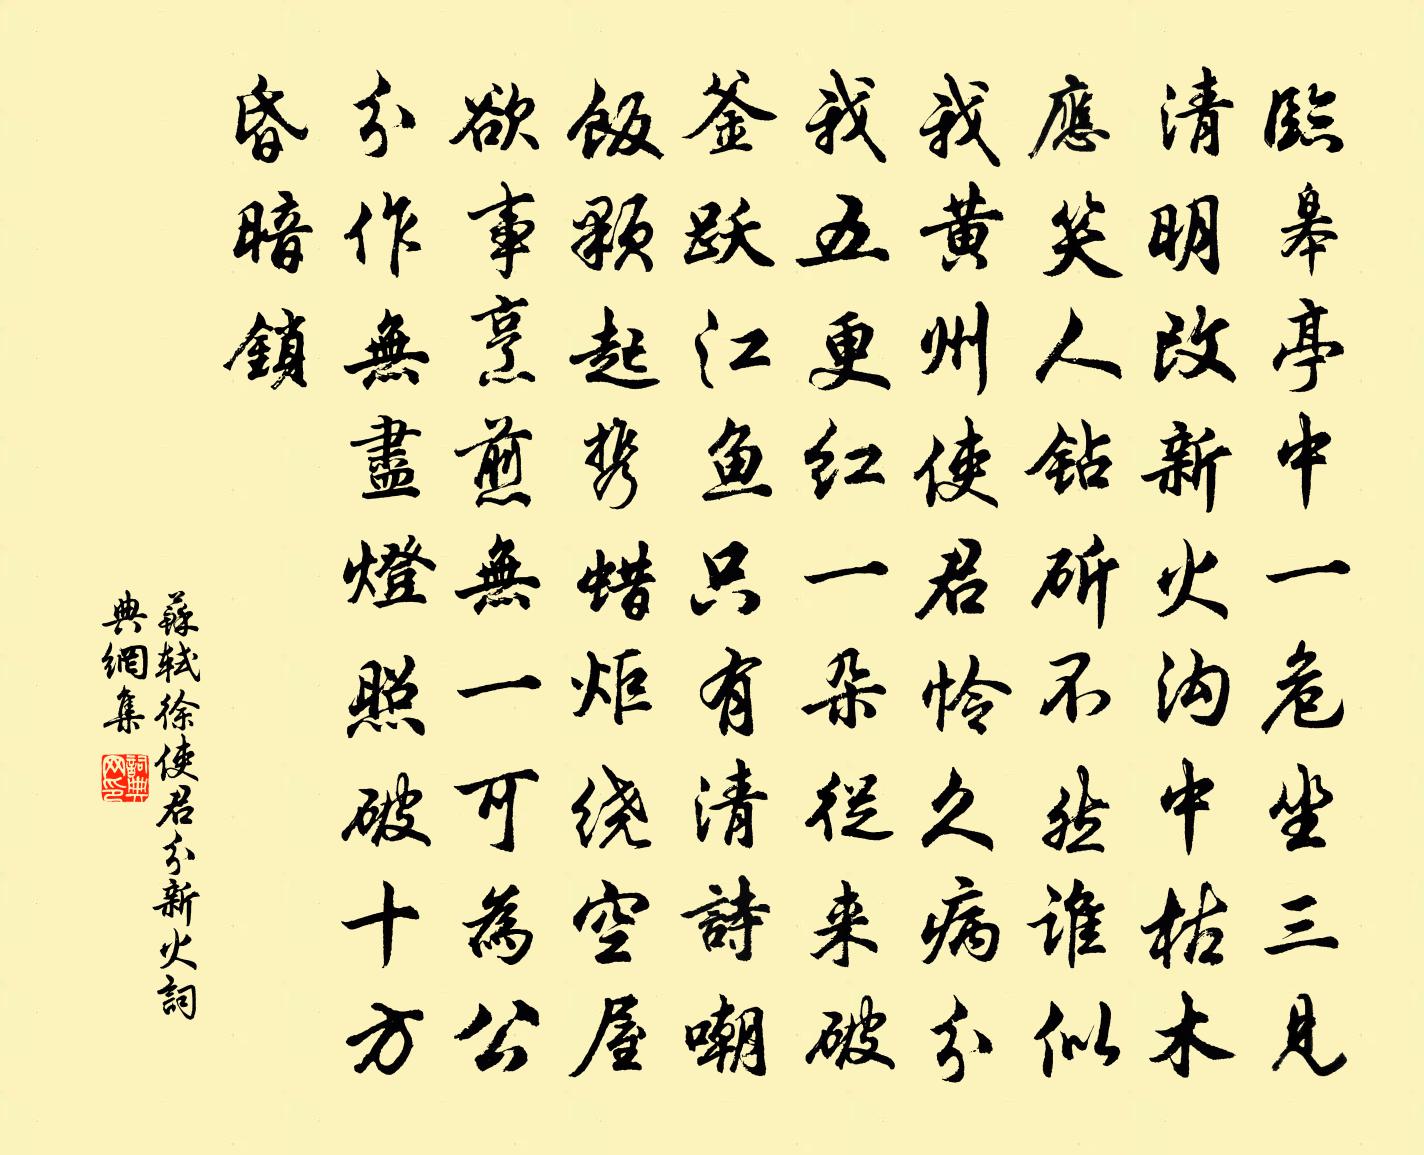 臨皋亭中一危坐三見
清明改新火沟中枯木
應笑人钻斫不然谁似
我黄州使君怜久病分
我五更红一朵從来破
釜跃江鱼只有清詩嘲
飯顆起携蜡炬绕空屋
欲事烹煎無一可為公
分作無盡燈照破十方
昏暗鎖
蘇轼徐使君分新火詞
典網集
詞典网印